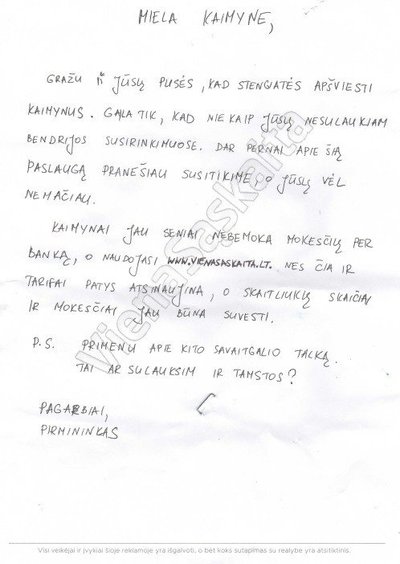 MIELA KAIMYNE,
GRAŽU IŠ JŪSŲ PUSĖS, KAD STENGIATĖS APŠVIESTI
KAIMYNUS. GAILA TIK, KAD NIEKAIP JŪSŲ NESULAUKIAM
BENDRIJOS SUSIRINKIMUOSE. DAR PERNAI APIE ŠIĄ
PASLAUGĄ PRANEŠIAU SUSITIKIME, O JŪSŲ VĖL
NEMAČIAU.
KAIMYNAI JAU SENIAI NEBEMOKA MOKESČIŲ PER
BANKĄ, O NAUDOJASI WWW.VIENASASKAITA.LT. NES ČIA IR
TARIFAI PATYS ATSINAUJINA, O SKAITLIUKŲ SKAIČIAI
IR MOKESČIAI JAU BŪNA SUVESTI.
P.S. PRIMENU APIE KITO SAVAITGALIO TALKĄ.
TAI AR SULAUKSIM IR TAMSTOS?
PAGARBIAI,
PIRMININKAS
Viena Sąskaita
Visi veikėjai ir įvykiai šioje reklamoje yra išgalvoti, o bet koks sutapimas su realybe yra atsitiktinis.